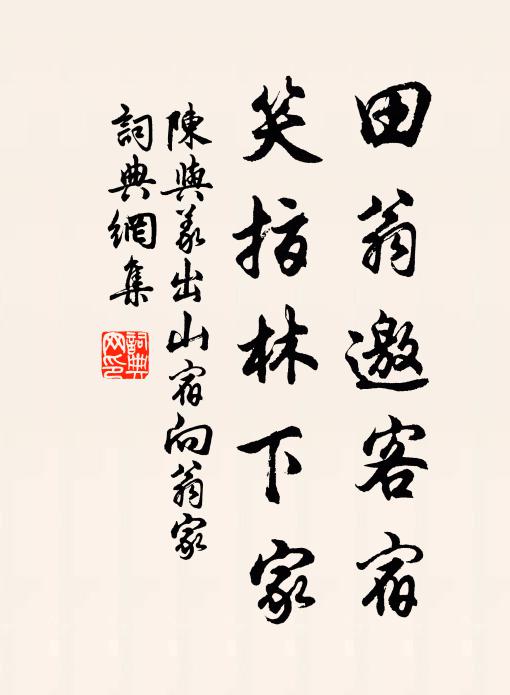 田翁邀客宿
笑指林下家
陳與義出山宿向翁家
詞典網集
詞典网印